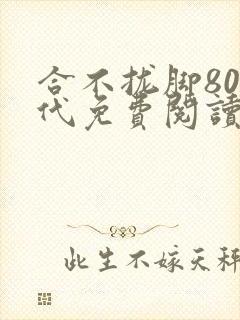 合不拢脚80
代免費閱讀
此生不嫁天秤